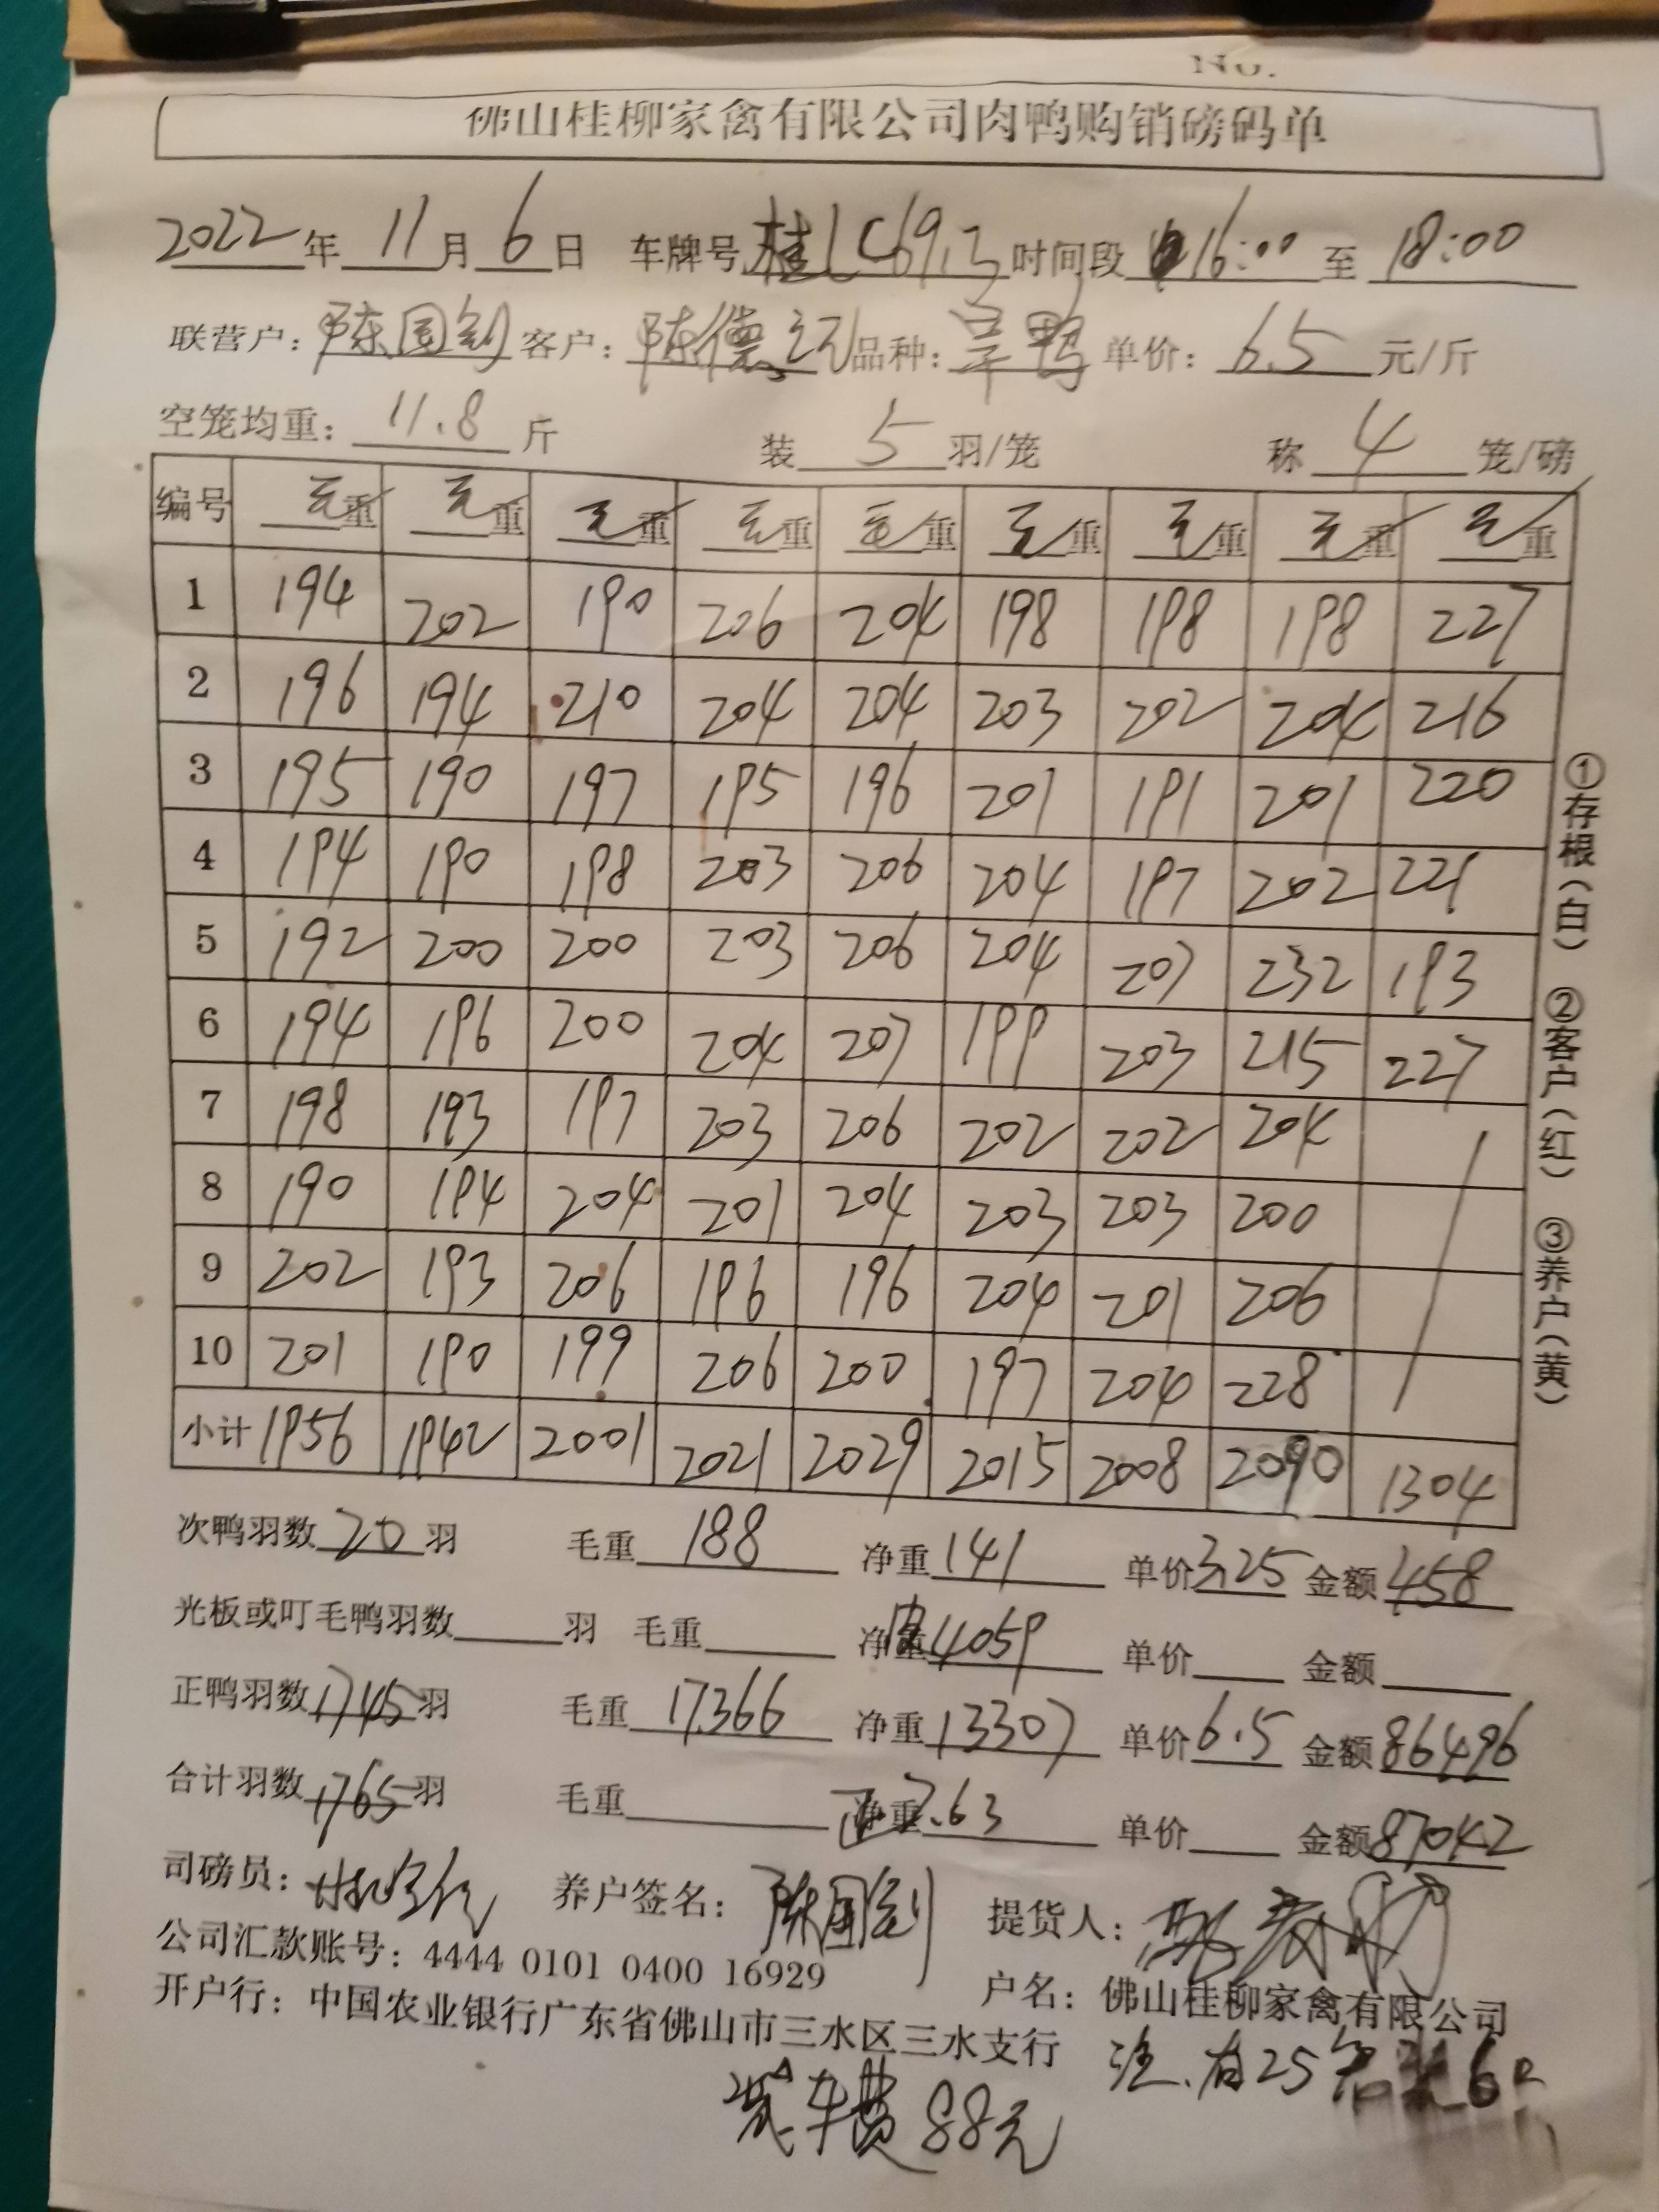 No.
佛山桂柳家禽有限公司肉鸭购销磅码单
2022年11月6日 车牌号桂 时间段16:00至18:00
联营户：陈国钊 客户：陈德 品种： 鸭 单价：6.5元/斤
空笼均重：11.8斤 装5羽/笼 称4笼/磅
编号 毛重 毛重 毛重 毛重 毛重 毛重 毛重 毛重 毛重
1 194 202 190 206 204 198 198 198 227
2 196 194 210 204 204 203 202 204 216
3 195 190 197 195 196 201 191 201 220
4 194 190 198 203 206 204 197 202 221
5 192 200 200 203 206 204 207 232 193
6 194 196 200 204 207 199 203 215 227
7 198 193 197 203 206 202 202 204
8 190 194 204 201 204 203 203 200
9 202 193 206 196 196 204 201 206
10 201 190 199 206 200 197 204 228
小计 1956 1942 2001 2021 2029 2015 2008 2090 1304
次鸭羽数20羽 毛重188 净重141 单价3.25 金额458
光板或叮毛鸭羽数 羽 毛重 净重皮4059 单价 金额
正鸭羽数1745羽 毛重17366 净重13307 单价6.5 金额86496
合计羽数1765羽 毛重 净重正7.63 单价 金额87042
司磅员： 养户签名：陈国钊 提货人：
公司汇款账号：4444 0101 0400 16929 户名：佛山桂柳家禽有限公司
开户行：中国农业银行广东省佛山市三水区三水支行
注.有25笼装6只
装车费88元
①存根（白） ②客户（红） ③养户（黄）